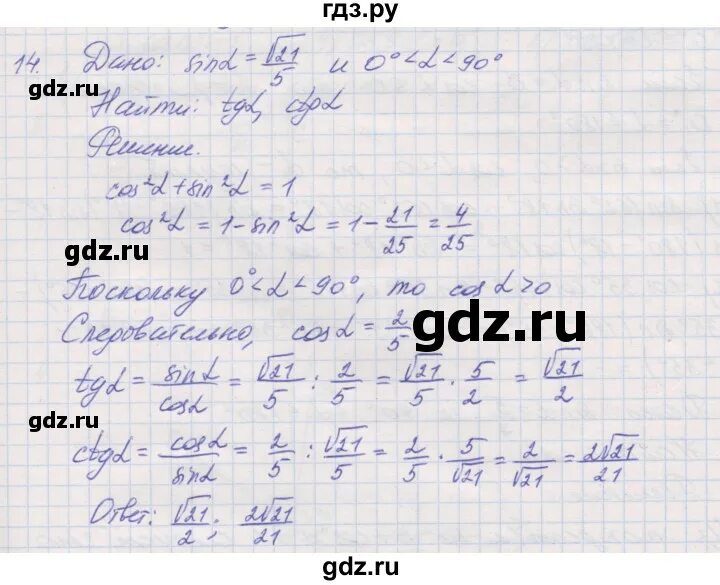 гдз.ру
14. Дано: sinα = √21/5 и 0° < α < 90°
gdz.ru
gdz.ru
Найти: tgα, ctgα
Решение.
cos²α + sin²α = 1
cos²α = 1 - sin²α = 1 - 21/25 = 4/25
gdz.ru
gdz.ru
Поскольку 0° < α < 90°, то cosα > 0
Следовательно, cosα = 2/5
gdz.ru
tgα = sinα/cosα = √21/5 : 2/5 = √21/5 · 5/2 = √21/2
gdz.ru
gdz.ru
ctgα = cosα/sinα = 2/5 : √21/5 = 2/5 · 5/√21 = 2/√21 = 2√21/21
Ответ: √21/2; 2√21/21
gdz.ru
gdz.ru